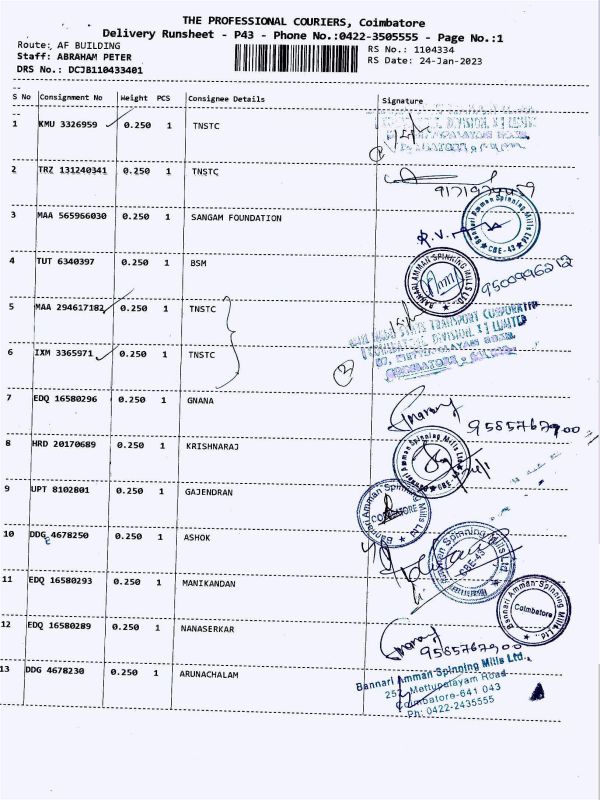 THE PROFESSIONAL COURIERS, Coimbatore
Delivery Runsheet - P43 - Phone No.:0422-3505555 - Page No.:1
Route: AF BUILDING
RS No.: 1104334
Staff: ABRAHAM PETER
RS Date: 24-Jan-2023
DRS No.: DCJB110433401
S No Consignment No Weight PCS Consignee Details Signature
1 KMU 3326959 0.250 1 TNSTC
2 TRZ 131240341 0.250 1 TNSTC
3 MAA 565966030 0.250 1 SANGAM FOUNDATION
Bannari Amman Spinning Mills Ltd. CBE-43
R.V.
4 TUT 6340397 0.250 1 BSM
BANNARI AMMAN SPINNING MILLS LTD.
9500996212
5 MAA 294617182 0.250 1 TNSTC
STATE TRANSPORT CORPORATION
DIVISION X I LIMITED
6 IXM 3365971 0.250 1 TNSTC
2
7 EDQ 16580296 0.250 1 GNANA
9585767900
8 HRD 20170689 0.250 1 KRISHNARAJ
Bannari Amman Spinning Mills Ltd
9 UPT 8102801 0.250 1 GAJENDRAN
Bannari Amman Spinning Mills Ltd
COIMBATORE
10 DDG 4678250 0.250 1 ASHOK
Bannari Amman Spinning Mills Ltd
CBE-43
11 EDQ 16580293 0.250 1 MANIKANDAN
Bannari Amman Spinning Mills Ltd.
Coimbatore
12 EDQ 16580289 0.250 1 NANASERKAR
9585767900
13 DDG 4678230 0.250 1 ARUNACHALAM
Bannari Amman Spinning Mills Ltd.
252 Mettupalayam Road
Coimbatore-641 043
Ph: 0422-2435555